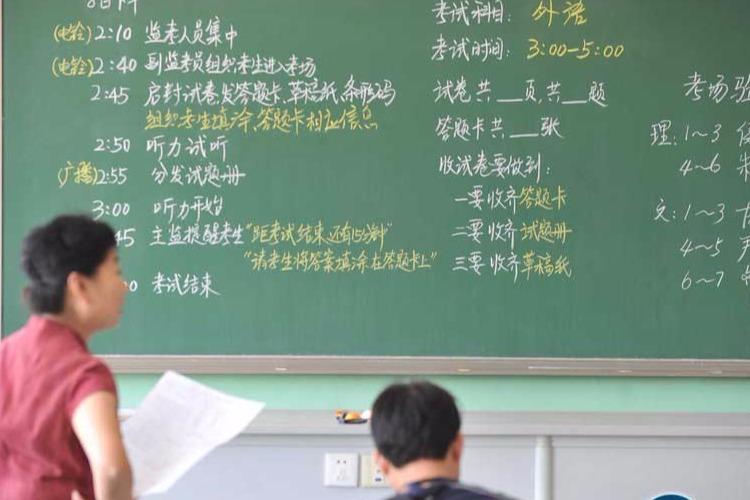 (电铃)2:10 监考人员集中
(电铃)2:40 副监考员组织考生进入考场
2:45 启封试卷发答题卡、草稿纸、条形码
组织考生填涂答题卡相应信息
2:50 听力试听
(广播)2:55 分发试题册
3:00 听力开始
45 主监提醒考生"距考试结束还有15分钟"
"请考生将答案填涂在答题卡上"
0 考试结束
考试科目: 外语
考试时间: 3:00—5:00
试卷共___页,共___题
答题卡共___张
收试卷要做到:
一要收齐答题卡
二要收齐试题册
三要收齐草稿纸
考场
理:1~3
4~6
文:1~3
4~5
6~7